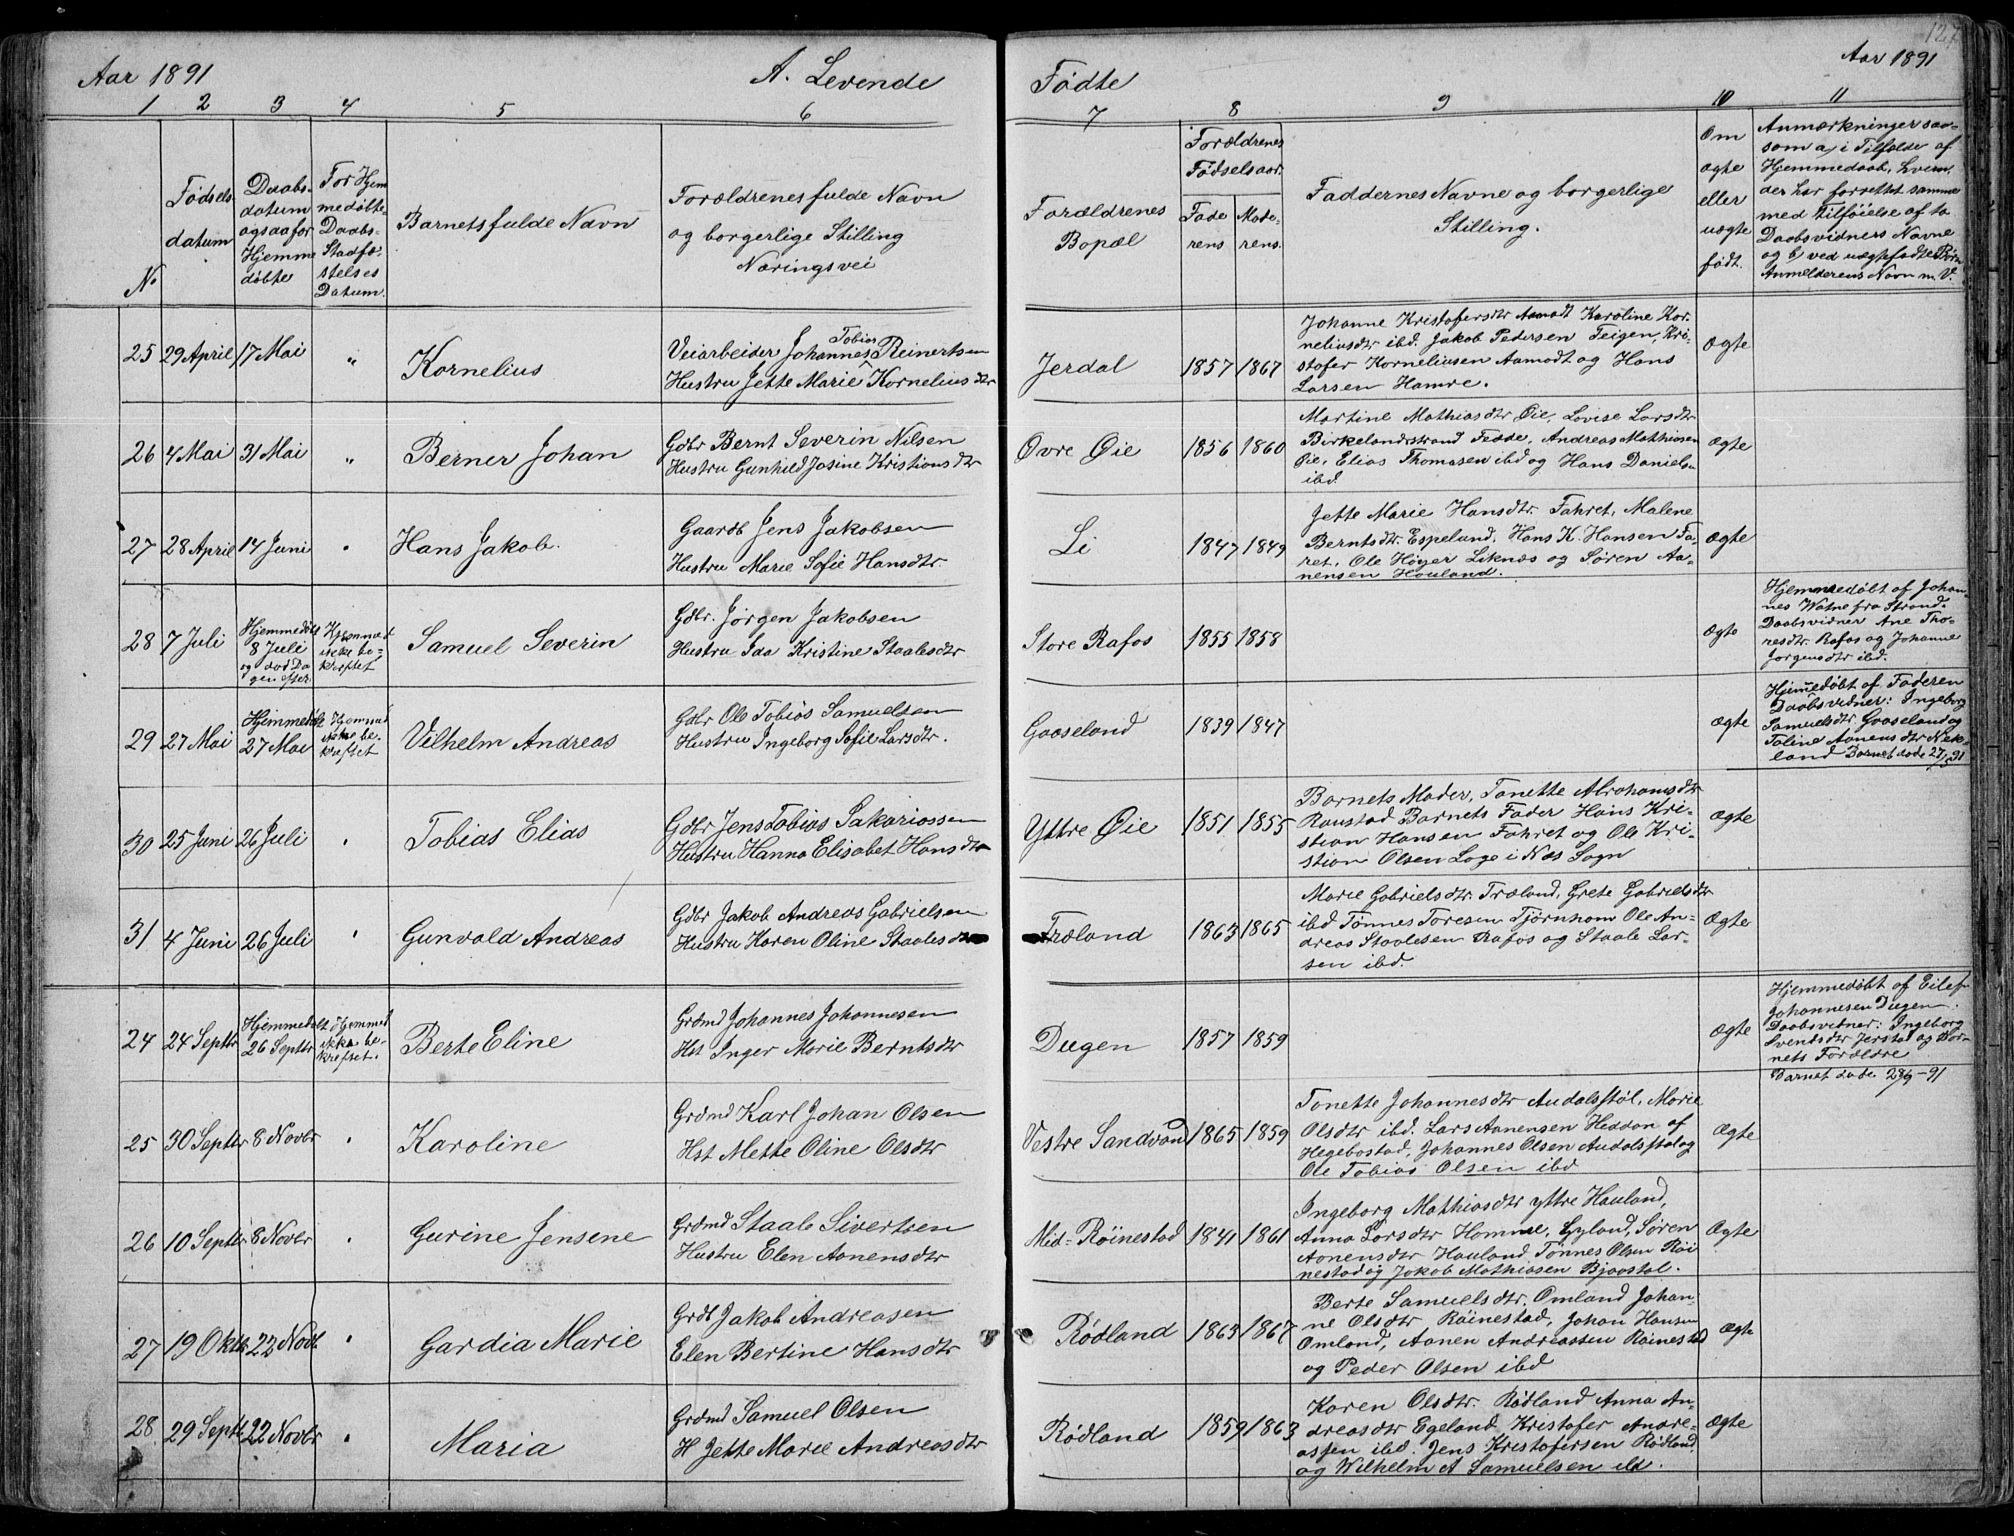 127
Aar 1891
A. Levende
Fødte
Aar 1891
1 2 3 4 5 6
7 8 9 10 11
No
Fødsels-
datum
Daabs-
datum
ogsaa for
Hjemme
døbte
For Hjem
medøbte
Daabs-
Stadfæ-
stelses
Datum.
Barnets fulde Navn
Forældrenes fulde Navn
og borgerlige Stilling
Næringsvei
Forældrenes
Bopæl
Forældrenes
Fødselsaar.
Fade
rens
Mode-
rens.
Faddernes Navne og borgerlige
Stilling.
Om
ægte
eller
uægte
født.
Anmærkninger saa-
som a, i Tilfælde af
Hjemmedaab, hvem
der har forrettet samme
med Tilføielse af to
Daabsvidners Navne
og b, ved uægtefødte Børn
Anmelderens Navn m. V.
25 29 April 17 Mai " Kornelius
Tobias
Veiarbeider Johannes Reinertsen
Hustru Jette Marie Kornelius dtr
Jerdal 1857 1867
Johanne Kristofersdtr Aamodt Karoline Kor-
neliusdtr ibd. Jakob Pedersen Teigen, Kri-
stofer Korneliusen Aamodt og Hans
Larsen Hamre.
Ægte
26 4 Mai 31 Mai " Berner Johan
Gdbr Bernt Severin Nilsen
Hustru Gunhild Josine Kristiansdtr
Øvre Øie 1856 1860
Martine Mathiasdtr Øie, Lovise Larsdtr
Birkelandsstrand Fede, Andreas Mathiasen
Øie, Elias Thomasen ibd og Hans Danielsen
ibd.
Ægte
27 28 April 14 Juni " Hans Jakob.
Gaardb Jens Jakobsen
Hustru Marie Sofie Hansdtr.
Li 1847 1849
Jette Marie Hansdtr. Fahret, Malene
Berntsdtr. Espeland, Hans K. Hansen Fa-
ret, Ole Høyer Liknæs og Søren Aa-
nensen Houland.
Ægte
28 7 Juli
Hjemmedøbt
8 Juli
og død Da
gen efter
Hjemmed
ikke be-
kræftet
Samuel Severin
Gdbr. Jørgen Jakobsen
Hustru Ida Kristine Staalesdtr
Store Rafos 1855 1858
Ægte
Hjemmedøbt af Johan-
nes Watne fra Strand.
Daabsvidner Ane Tho-
resdtr. Rafos og Johanne
Jørgensdtr ibd.
29 27 Mai
Hjemmedøbt
27 Mai
Hjemmed
ikke be-
kræftet
Vilhelm Andreas
Gdbr Ole Tobias Samuelsen
Hustru Ingeborg Sofie Larsdtr.
Gaaseland 1839 1847
Ægte
Hjem̄edøbt af Faderen
Daabsvidner: Ingeborg
Samuelsdtr Gaaseland og
Toline Aanensdtr Nek-
land Barnet døde 27/5 91
30 25 Juni 26 Juli " Tobias Elias
Gdbr Jens Tobias Sakariassen
Hustru Hanna Elisabet Hansdtr
Yttre Øie 1851 1855
Barnets Moder, Tonette Abrahamsdtr
Raustad Barnets Fader Hans Kri-
stian Hansen Fahret og Ole Kri-
stian Olsen Loge i Næs Sogn
Ægte
31 4 Juni 26 Juli " Gunvald Andreas
Gdbr Jakob Andreas Gabrielsen
Hustru Karen Oline Staalesdtr
Træland 1863 1865
Marie Gabrielsdtr. Træland, Grete Gabrielsdtr
ibd Tønnes Toresen Tjørnhom Ole An-
dreas Staalesen Rafos og Staale Lar-
sen ibd.
Ægte
24 24 Septbr
Hjemmedøbt
26 Septbr
Hjemmed
ikke be-
kræftet.
Berte Eline
Grdmd Johannes Johannesen
Hst Inger Marie Berntsdtr
Dugen 1857 1859
Ægte
Hjemmedøbt af Eilef
Johannesen Dugen.
Daabsvidner: Ingeborg
Svendsdtr Jerstad og Bar-
nets Forældre
Barnet døde 28/9-91
25 30 Septbr 8 Novbr " Karoline
Grdmd Karl Johan Olsen
Hst Mette Oline Olsdtr
Vestre Sandvand 1865 1859
Tonette Johannesdtr Audalsstøl, Marie
Olsdtr ibd. Lars Aanensen Heddan af
Hegebostad, Johannes Olsen Audalsstøl og
Ole Tobias Olsen ibd
Ægte
26 10 Septbr 8 Novbr " Gurine Jensene
Grdmd Staale Sivertsen
Hustru Elen Aanensdtr
Mid-Røinestad 1841 1861
Ingeborg Mathiasdtr yttre Hauland,
Anna Larsdtr Homme, Gyland, Søren
Aanensdtr Hauland Tønnes Olsen Røi
nestad og Jakob Mathiasen Bjaastal.
Ægte
27 19 Oktbr 22 Novb " Gardia Marie
Grdb Jakob Andreasen
Elen Bertine Hansdtr
Rødland 1863 1867
Berte Samuelsdtr. Omland Johan-
ne Olsdtr Røinestad, Johan Hansen
Omland, Aanen Andreassen Røinestad
og Peder Olsen ibd
Ægte
28 29 Septb 22 Novbr " Maria
Grdmd Samuel Olsen
H Jette Marie Andreasdtr
Rødland 1859 1863
Karen Olsdtr. Rødland Anna An-
dreasdtr Egeland Kristofer Andre-
assen ibd. Jens Kristofersen Rødland
og Wilhelm A Samuelsen ibd.
Ægte